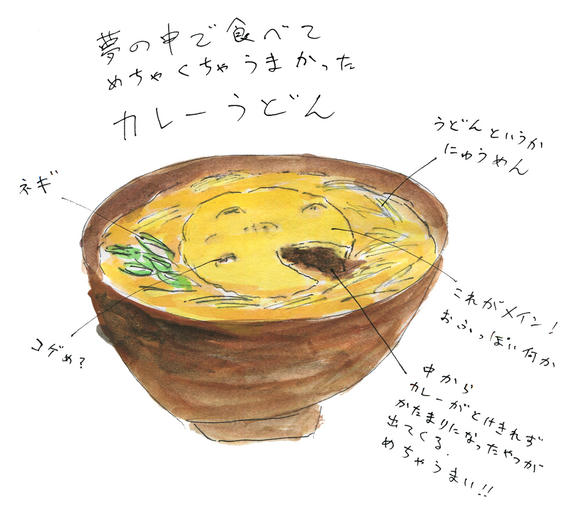 夢の中で食べて
めちゃくちゃうまかった
カレーうどん
うどんというか
にゅうめん
ネギ
これがメイン!
おふっぽい何か
コゲめ?
中から
カレーがとけきれず
かたまりになったやつが
出てくる.
めちゃうまい!!